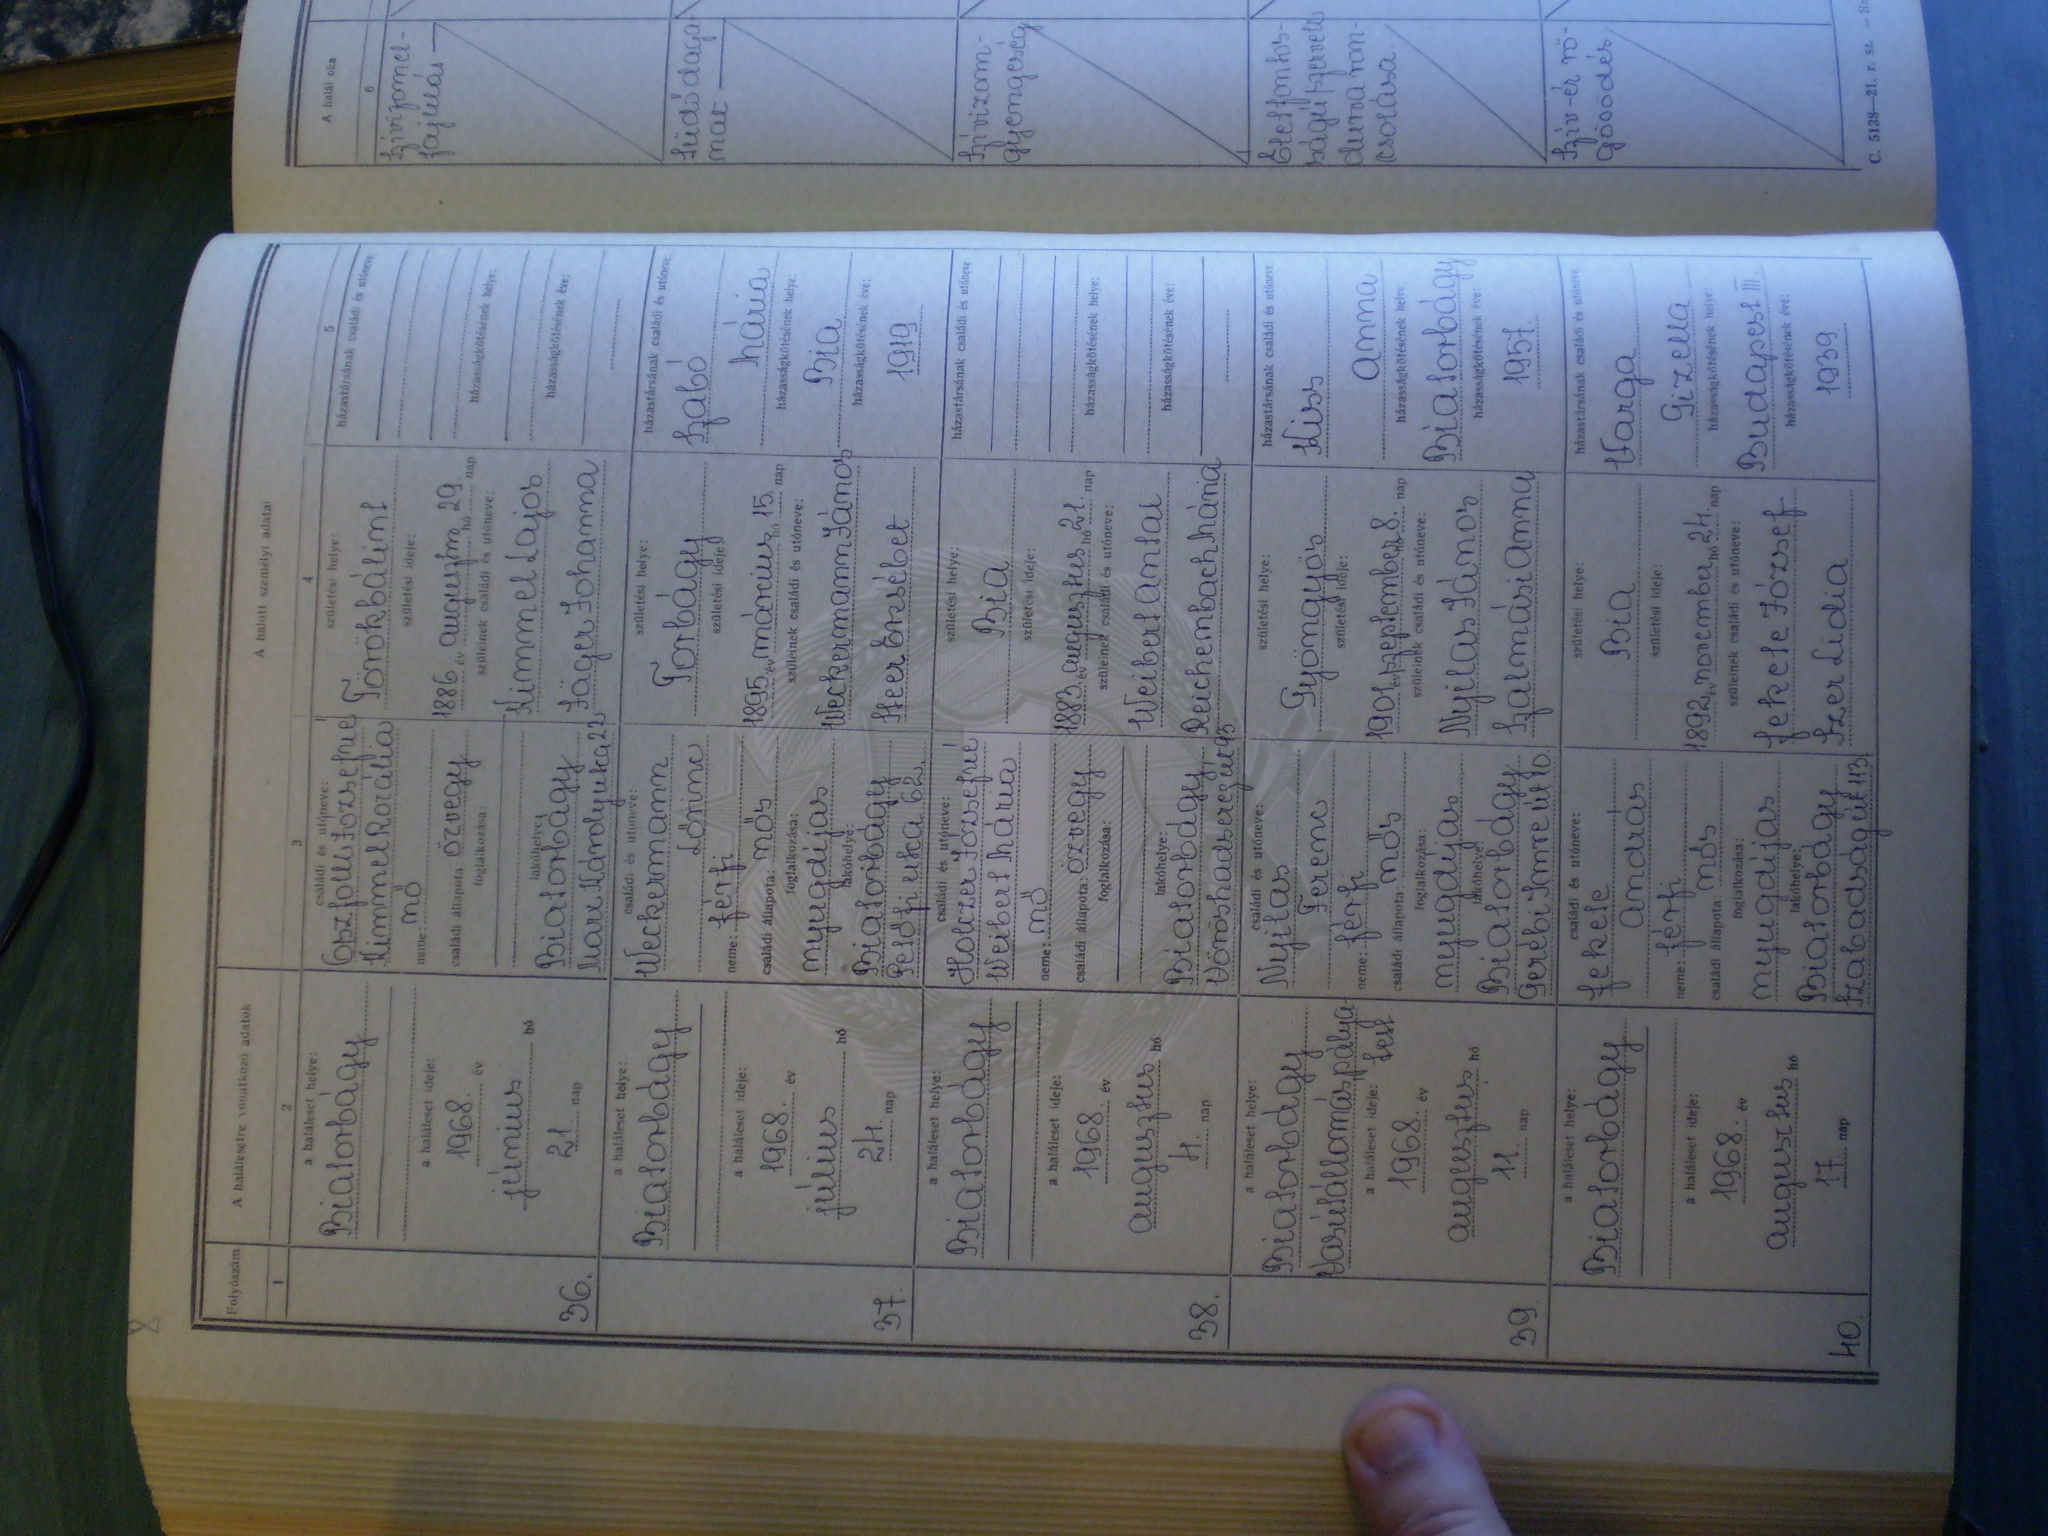 Folyószám
A halálesetre vonatkozó adatok
A halott személyi adatai
A halál oka
1
2
3
4
5
6
a haláleset helye:
Biatorbágy
a haláleset ideje:
1968. év
június hó
21. nap
36.
családi és utóneve:
Józsefné
Kimmel Rozália
neme: nő
családi állapota: özvegy
foglalkozása:
lakóhelye:
Biatorbágy
Marx Károly utca 22
születési helye:
Törökbálint
születési ideje:
1886. év augusztus hó 29. nap
szüleinek családi és utóneve:
Kimmel Lajos
Jáger Johanna
házastársának családi és utóneve:
házasságkötésének helye:
házasságkötésének éve:
Szívizomel-
fajulás
a haláleset helye:
Biatorbágy
a haláleset ideje:
1968. év
július hó
24. nap
37.
családi és utóneve:
Weckermann
Lőrinc
neme: férfi
családi állapota: nős
foglalkozása:
nyugdíjas
lakóhelye:
Biatorbágy
Petőfi utca 62.
születési helye:
Torbágy
születési ideje:
1895. év március hó 15. nap
szüleinek családi és utóneve:
Weckermann János
Heer Erzsébet
házastársának családi és utóneve:
Szabó
Mária
házasságkötésének helye:
Bia
házasságkötésének éve:
1919
Tüdődaga-
nat
a haláleset helye:
Biatorbágy
a haláleset ideje:
1968. év
augusztus hó
4. nap
38.
családi és utóneve:
Holczer Józsefné
Weibert Mária
neme: nő
családi állapota: özvegy
foglalkozása:
lakóhelye:
Biatorbágy,
Vöröshadsereg út 93
születési helye:
Bia
születési ideje:
1883. év augusztus hó 21. nap
szüleinek családi és utóneve:
Weibert Antal
Reichenbach Mária
házastársának családi és utóneve:
házasságkötésének helye:
házasságkötésének éve:
Szívizom-
gyengeség
a haláleset helye:
Biatorbágy
Vasútállomás pálya-
test
a haláleset ideje:
1968. év
augusztus hó
11. nap
39.
családi és utóneve:
Nyilas
Ferenc
neme: férfi
családi állapota: nős
foglalkozása:
nyugdíjas
lakóhelye:
Biatorbágy
Gerébi Imre út 10.
születési helye:
Gyöngyös
születési ideje:
1901. év szeptember hó 8. nap
szüleinek családi és utóneve:
Nyilas János
Szalmási Anna
házastársának családi és utóneve:
Kiss
Anna
házasságkötésének helye:
Biatorbágy
házasságkötésének éve:
1957.
Életfontos-
ságú szervek
durva ron-
csolása.
a haláleset helye:
Biatorbágy
a haláleset ideje:
1968. év
augusztus hó
17. nap
40.
családi és utóneve:
Fekete
András
neme: férfi
családi állapota: nős
foglalkozása:
nyugdíjas
lakóhelye:
Biatorbágy
Szabadság út 113
születési helye:
Bia
születési ideje:
1892. év november hó 24. nap
szüleinek családi és utóneve:
Fekete József
Szer Lidia
házastársának családi és utóneve:
Varga
Gizella
házasságkötésének helye:
Budapest III.
házasságkötésének éve:
1939
Szív-ér rö-
gösödés
C. 5138—21. r. sz.